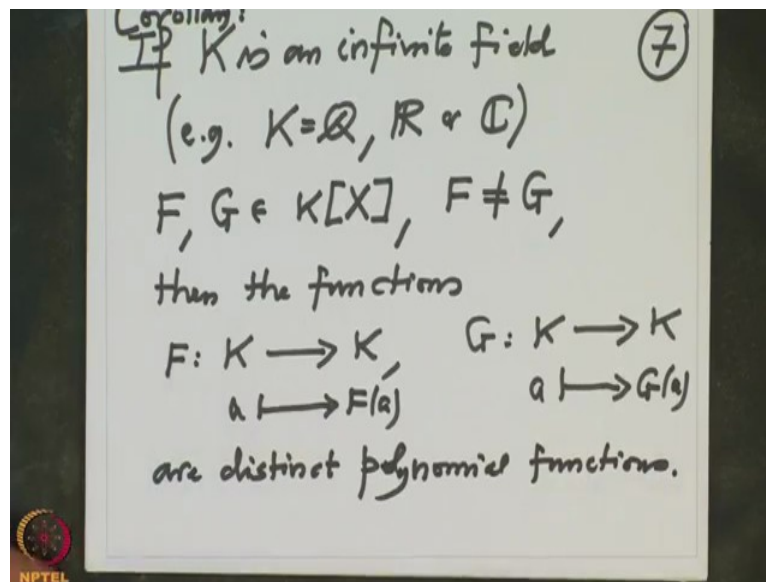 Corollary:
If K is an infinite field
⑦
(e.g. K=ℚ, ℝ or ℂ)
F, G ∈ K[X], F ≠ G,
then the functions
F: K ⟶ K, G: K ⟶ K
a ⟼ F(a) a ⟼ G(a)
are distinct polynomial functions.
NPTEL